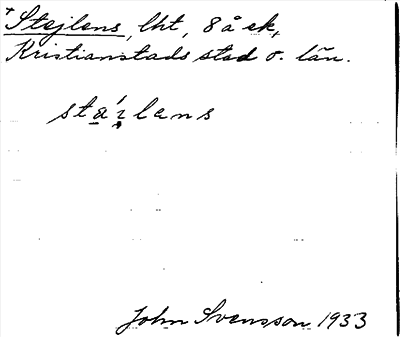 + Stejlens, lht, 8 å ek,
Kristianstads stad o. län.
stáɪ̯lans
John Svensson 1933